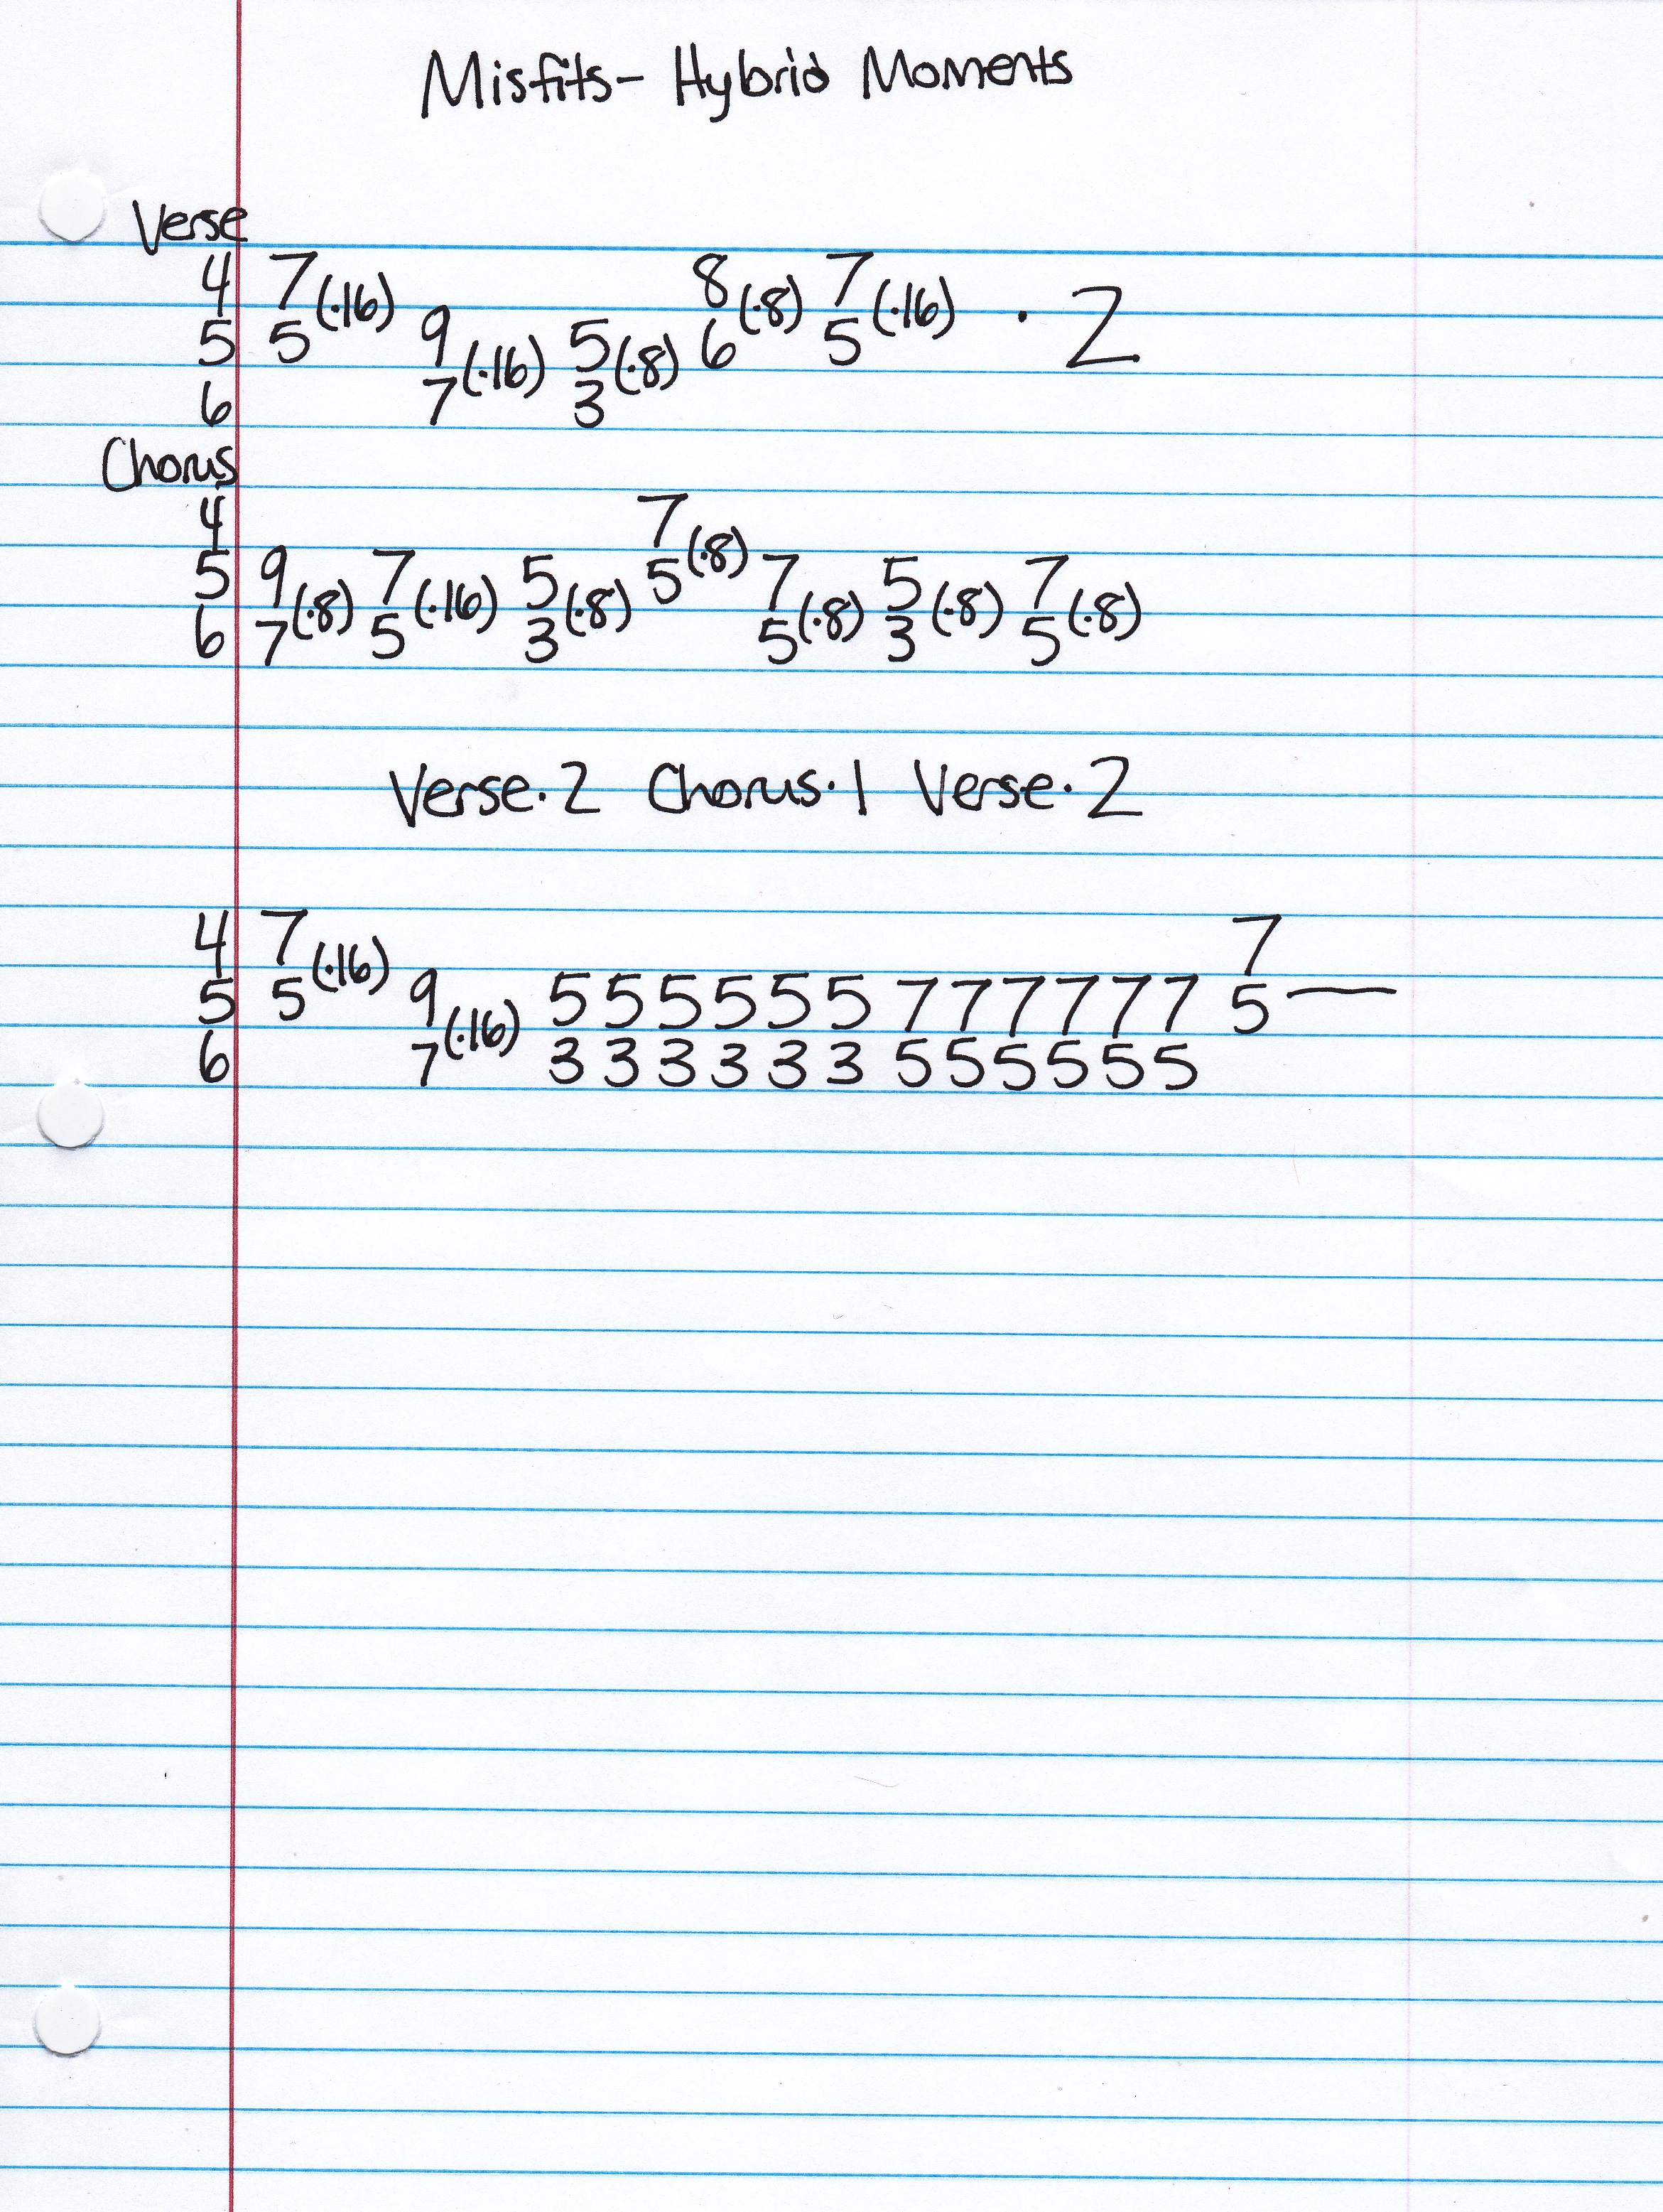 Misfits- Hybrid Moments
Verse
4 7 8 7
(·16) (·8) (·16) · 2
5 5 9 5 6 5
(·16) (·8)
6 7 3
Chorus
4 7
(·8)
5 9 7 5 5 7 5 7
(·8) (·16) (·8) (·8) (·8) (·8)
6 7 5 3 5 3 5
Verse·2 Chorus·1 Verse·2
4 7 7
(·16)
5 5 9 5 5 5 5 5 5 7 7 7 7 7 7 5—
(·16)
6 7 3 3 3 3 3 3 5 5 5 5 5 5